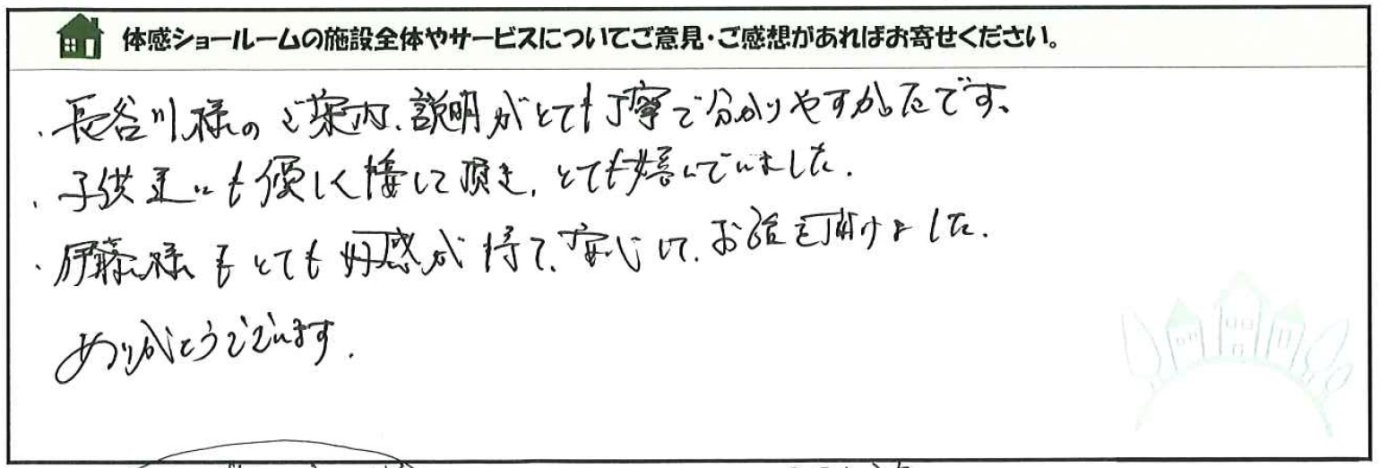 体感ショールームの施設全体やサービスについてご意見・ご感想があればお寄せください。
・長谷川様のご案内、説明がとても丁寧で分かりやすかったです。
・子供達にも優しく接して頂き、とても嬉んでいました。
・伊藤様もとても好感が得て、安心して、お話を頂けました。
ありがとうございます。